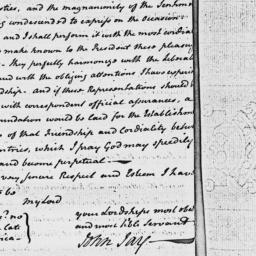 ties, and the magnanimity of the Sentim
ng condescended to express on the Occasion
and I shall perform it with the most cordial
to make known to the President these pleasing
they perfectly harmonize with the Liberal
and with the obliging attentions I have experi
dship. and if these Representations should b
with correspondent official assurances, a
oundation would be laid for the Establishm
of that Friendship and Cordiality betwe
ntries, which I pray God may speedily
and become perpetual—
very sincere Respect and Esteem I have
to be
my Lord
your Lordships most obe
and most h'ble Servant
John Jay—
no
late
ica-